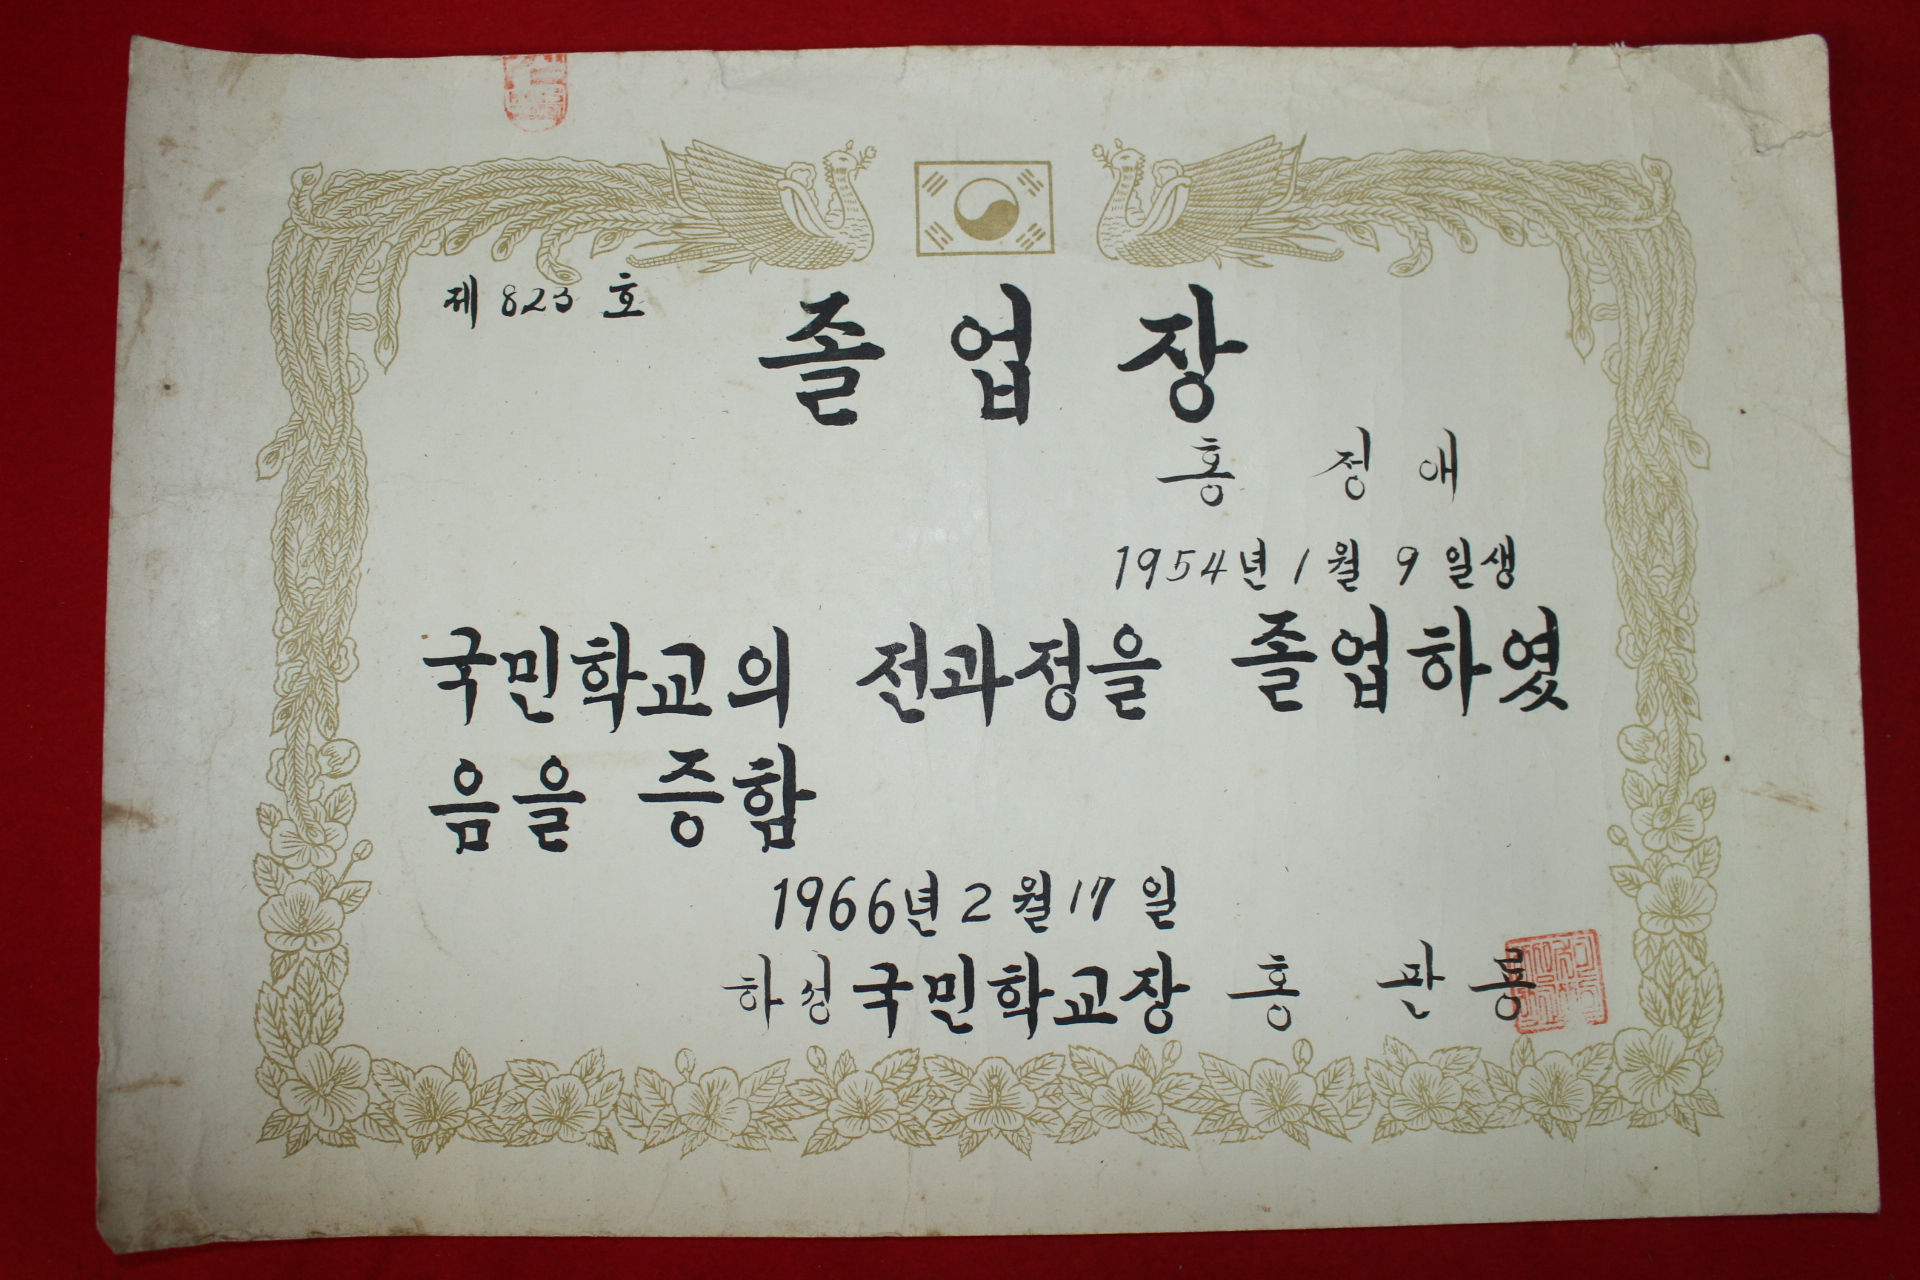 제 823 호
졸업장
홍 정 애
1954년 1월 9일생
국민학교의 전과정을 졸업하였
음을 증함
1966년 2월 17일
하성국민학교장 홍 관 룡